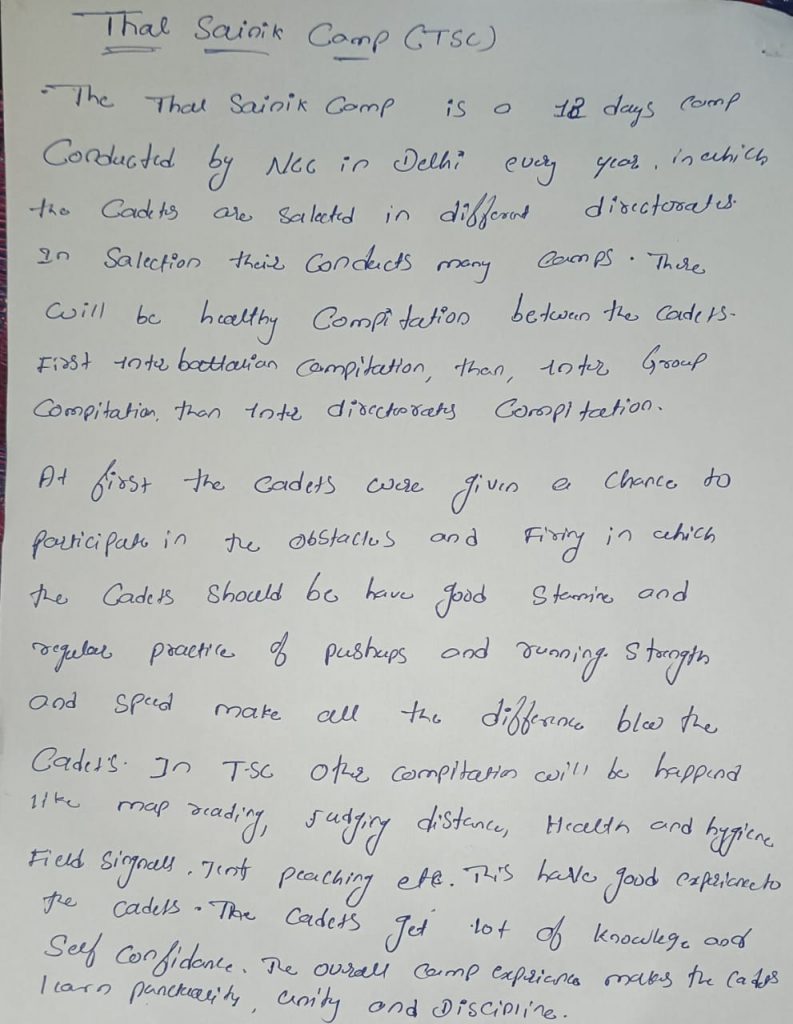 Thal Sainik Camp (TSC)
• The Thal Sainik Camp is a 12 days camp
Conducted by NCC in Delhi every year, in which
the Cadets are Salected in different directorates.
In Salection their Conducts many Camps. There
will be healthy Compitation between the Cadets.
First Inter battalian Campitation, than, Inter Group
Compitation, than Inter directorates Compitation.
At first the Cadets were given a Chance to
participate in the Obstacles and Firing in which
the Cadets Should be have good Stamina and
regular practice of pushups and running. Strength
and Speed make all the difference b/w the
Cadets. In TSC Other compitation will be happend
like map reading, Judging distance, Health and hygiene,
Field Signals, Tent peaching etc. This have good experience to
the cadets. The Cadets get lot of knowlege and
Self Confidance. The overall Camp expriance makes the Cadets
learn punctuality, Unity and Discipline.